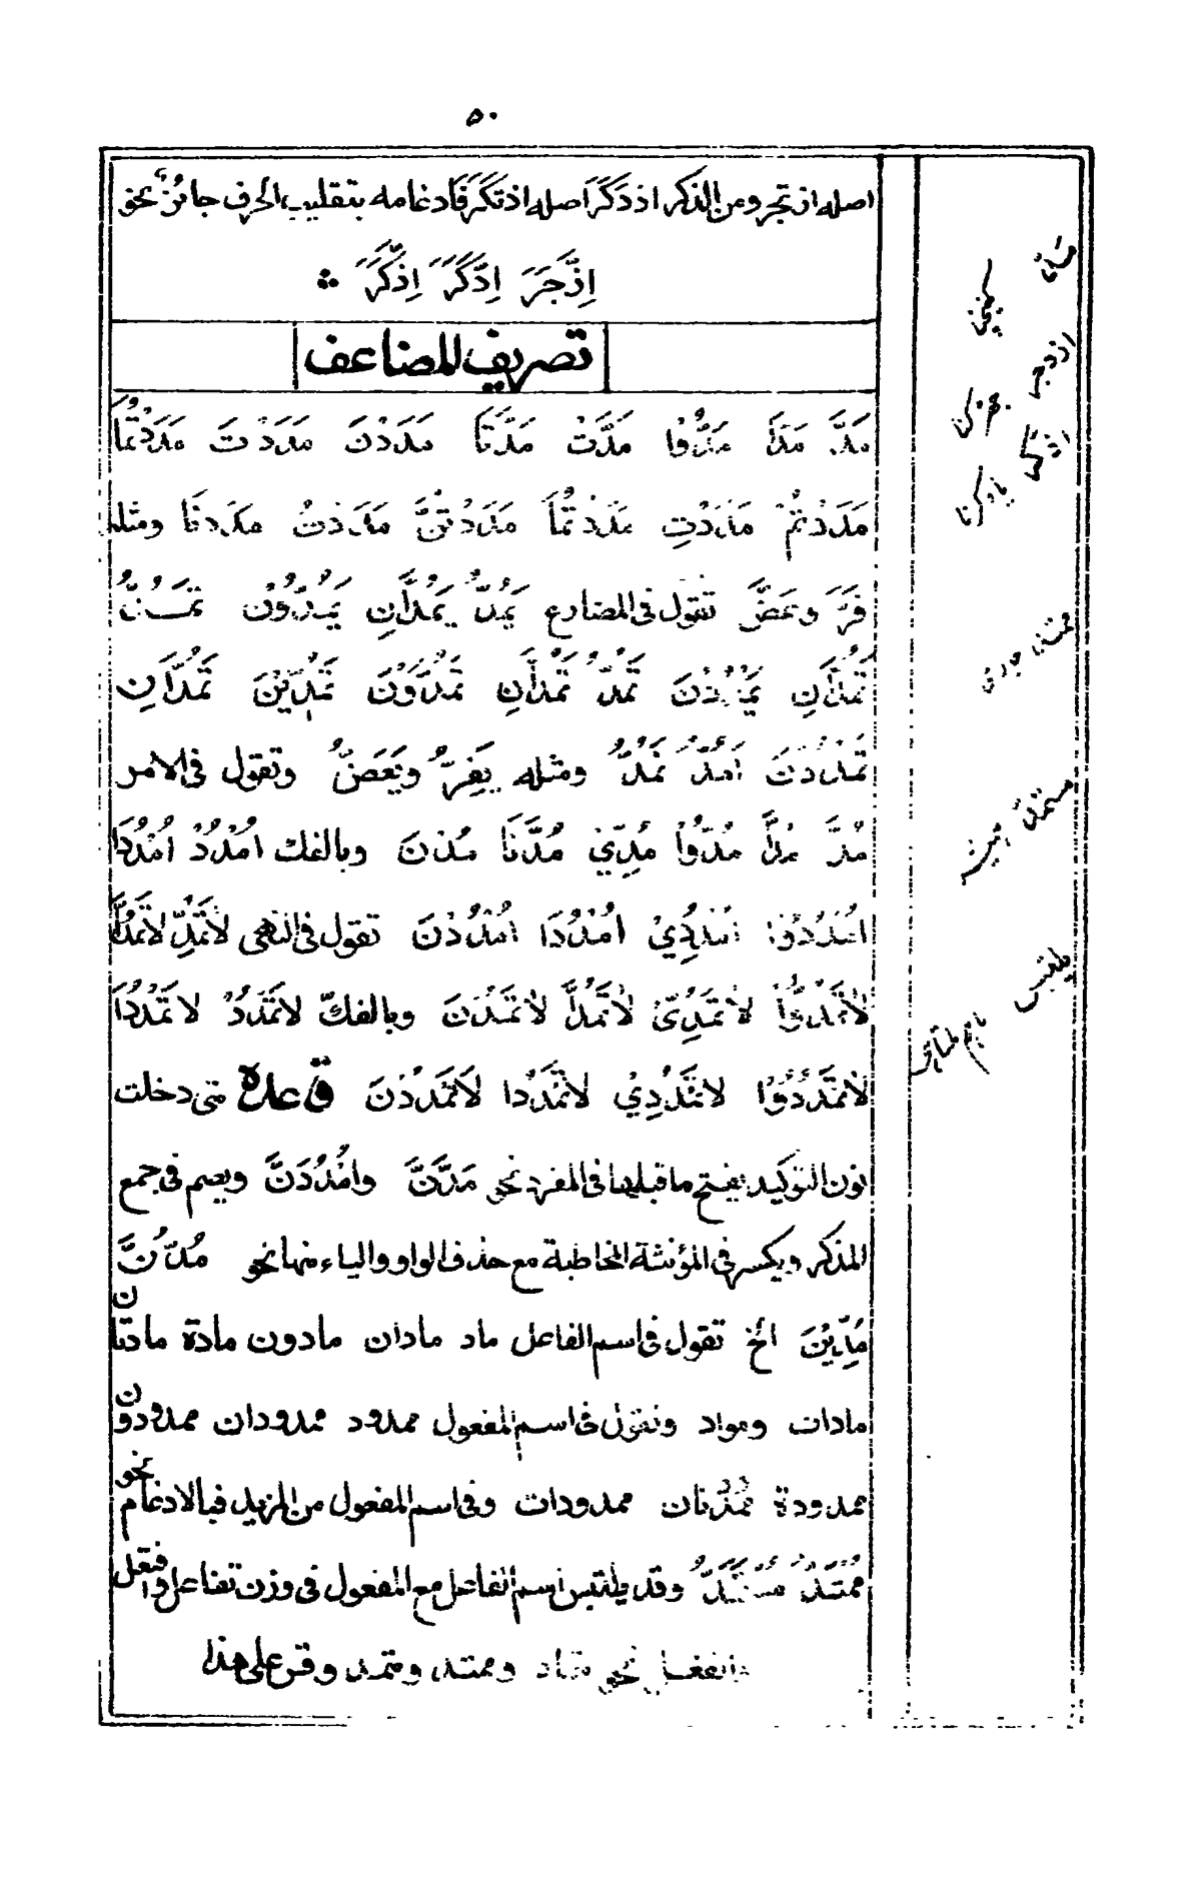 ۵۰
اصله ازتجر ومن الذكر اذدَكَرَ اصله اذتَكَرَ فادغامه بتقليب الحرف جائزٌ نحو
اِزَّجَرَ اِدَّكَرَ اِذَّكَرَ
تصريف المضاعف
مَدَّ مَدَّا مَدُّوْا مَدَّتْ مَدَّتَا مَدَدْنَ مَدَدْتَ مَدَدْتُمَا
مَدَدْتُمْ مَدَدْتِ مَدَدْتُمَا مَدَدْتُنَّ مَدَدْتُ مَدَدْنَا ومثله
فَرَّ وعَضَّ تقول فى المضارع يَمُدُّ يَمُدَّانِ يَمُدُّوْنَ تَمُدُّ
تَمُدَّانِ يَمْدُدْنَ تَمُدُّ تَمُدَّانِ تَمُدُّوْنَ تَمُدِّيْنَ تَمُدَّانِ
تَمْدُدْنَ اَمُدُّ نَمُدُّ ومثله يَفِرُّ ويَعَضُّ وتقول فى الامر
مُدَّ مُدَّا مُدُّوْا مُدِّيْ مُدَّا مُدْنَ وبالفك اُمْدُدْ اُمْدُدَا
اُمْدُدُوْا اُمْدُدِيْ اُمْدُدَا اُمْدُدْنَ تقول فى النهى لاتَمُدِّ لاتَمُدَّا
لاتَمُدُّوْا لاتَمُدِّيْ لاتَمُدَّا لاتَمْدُدْنَ وبالفكّ لاتَمْدُدْ لاتَمْدُدَا
لاتَمْدُدُوْا لاتَمْدُدِيْ لاتَمْدُدَا لاتَمْدُدْنَ قاعدہ متى دخلت
نون التوكيد يفتح ماقبلها فى المفرد نحو مُدَّنَّ وامْدُدَنَّ ويضم فى جمع
المذكر ويكسر فى المؤنثة المخاطبة مع حذف الواو والياء منها نحو مُدُّنَّ
مُدِّيْنَ الخ تقول فى اسم الفاعل ماد مادان مادون مادة مادتان
مادات ومواد وتقول فى اسم المفعول ممدود ممدودان ممدودون
ممدودة ممدتان ممدودات وفى اسم المفعول من المزيد فبالادغام نحو
مُمْتَدٌّ مُسْتَمَدٌّ وقد يلتبس اسم الفاعل مع المفعول فى وزن تفاعل وافتعل
وانفعل نحو متماد وممتد ومنمد وقس على هذا
ازدجر
جھڑكن
اذكر
يادكرنا
يلتبس